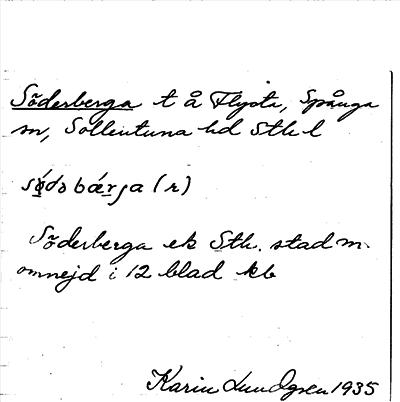 Söderberga t å Flysta, Spånga
sn, Sollentuna hd Sthl l
Söderberga ek Sth. stad m.
omnejd i 12 blad kb
Karin Lundgren 1935